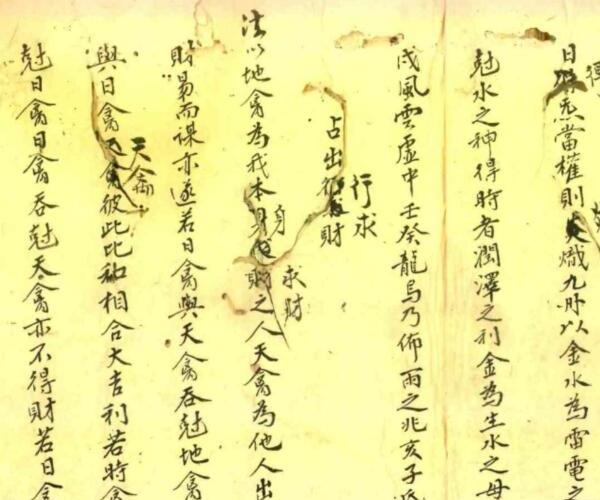 日煞炁當權則炎熾九時以金水為雷電之
尅水之神得時者潤澤之利金為生水之母
成風雲虛中壬癸龍烏乃佈雨之兆亥子
占出行求財
法以地禽為我本身求財之人天禽為他人出
財易而謀亦遂若日禽與天禽吞尅地禽
與日禽天禽彼此比和相合大吉利若時禽
尅日禽日禽吞尅天禽亦不得財若日禽